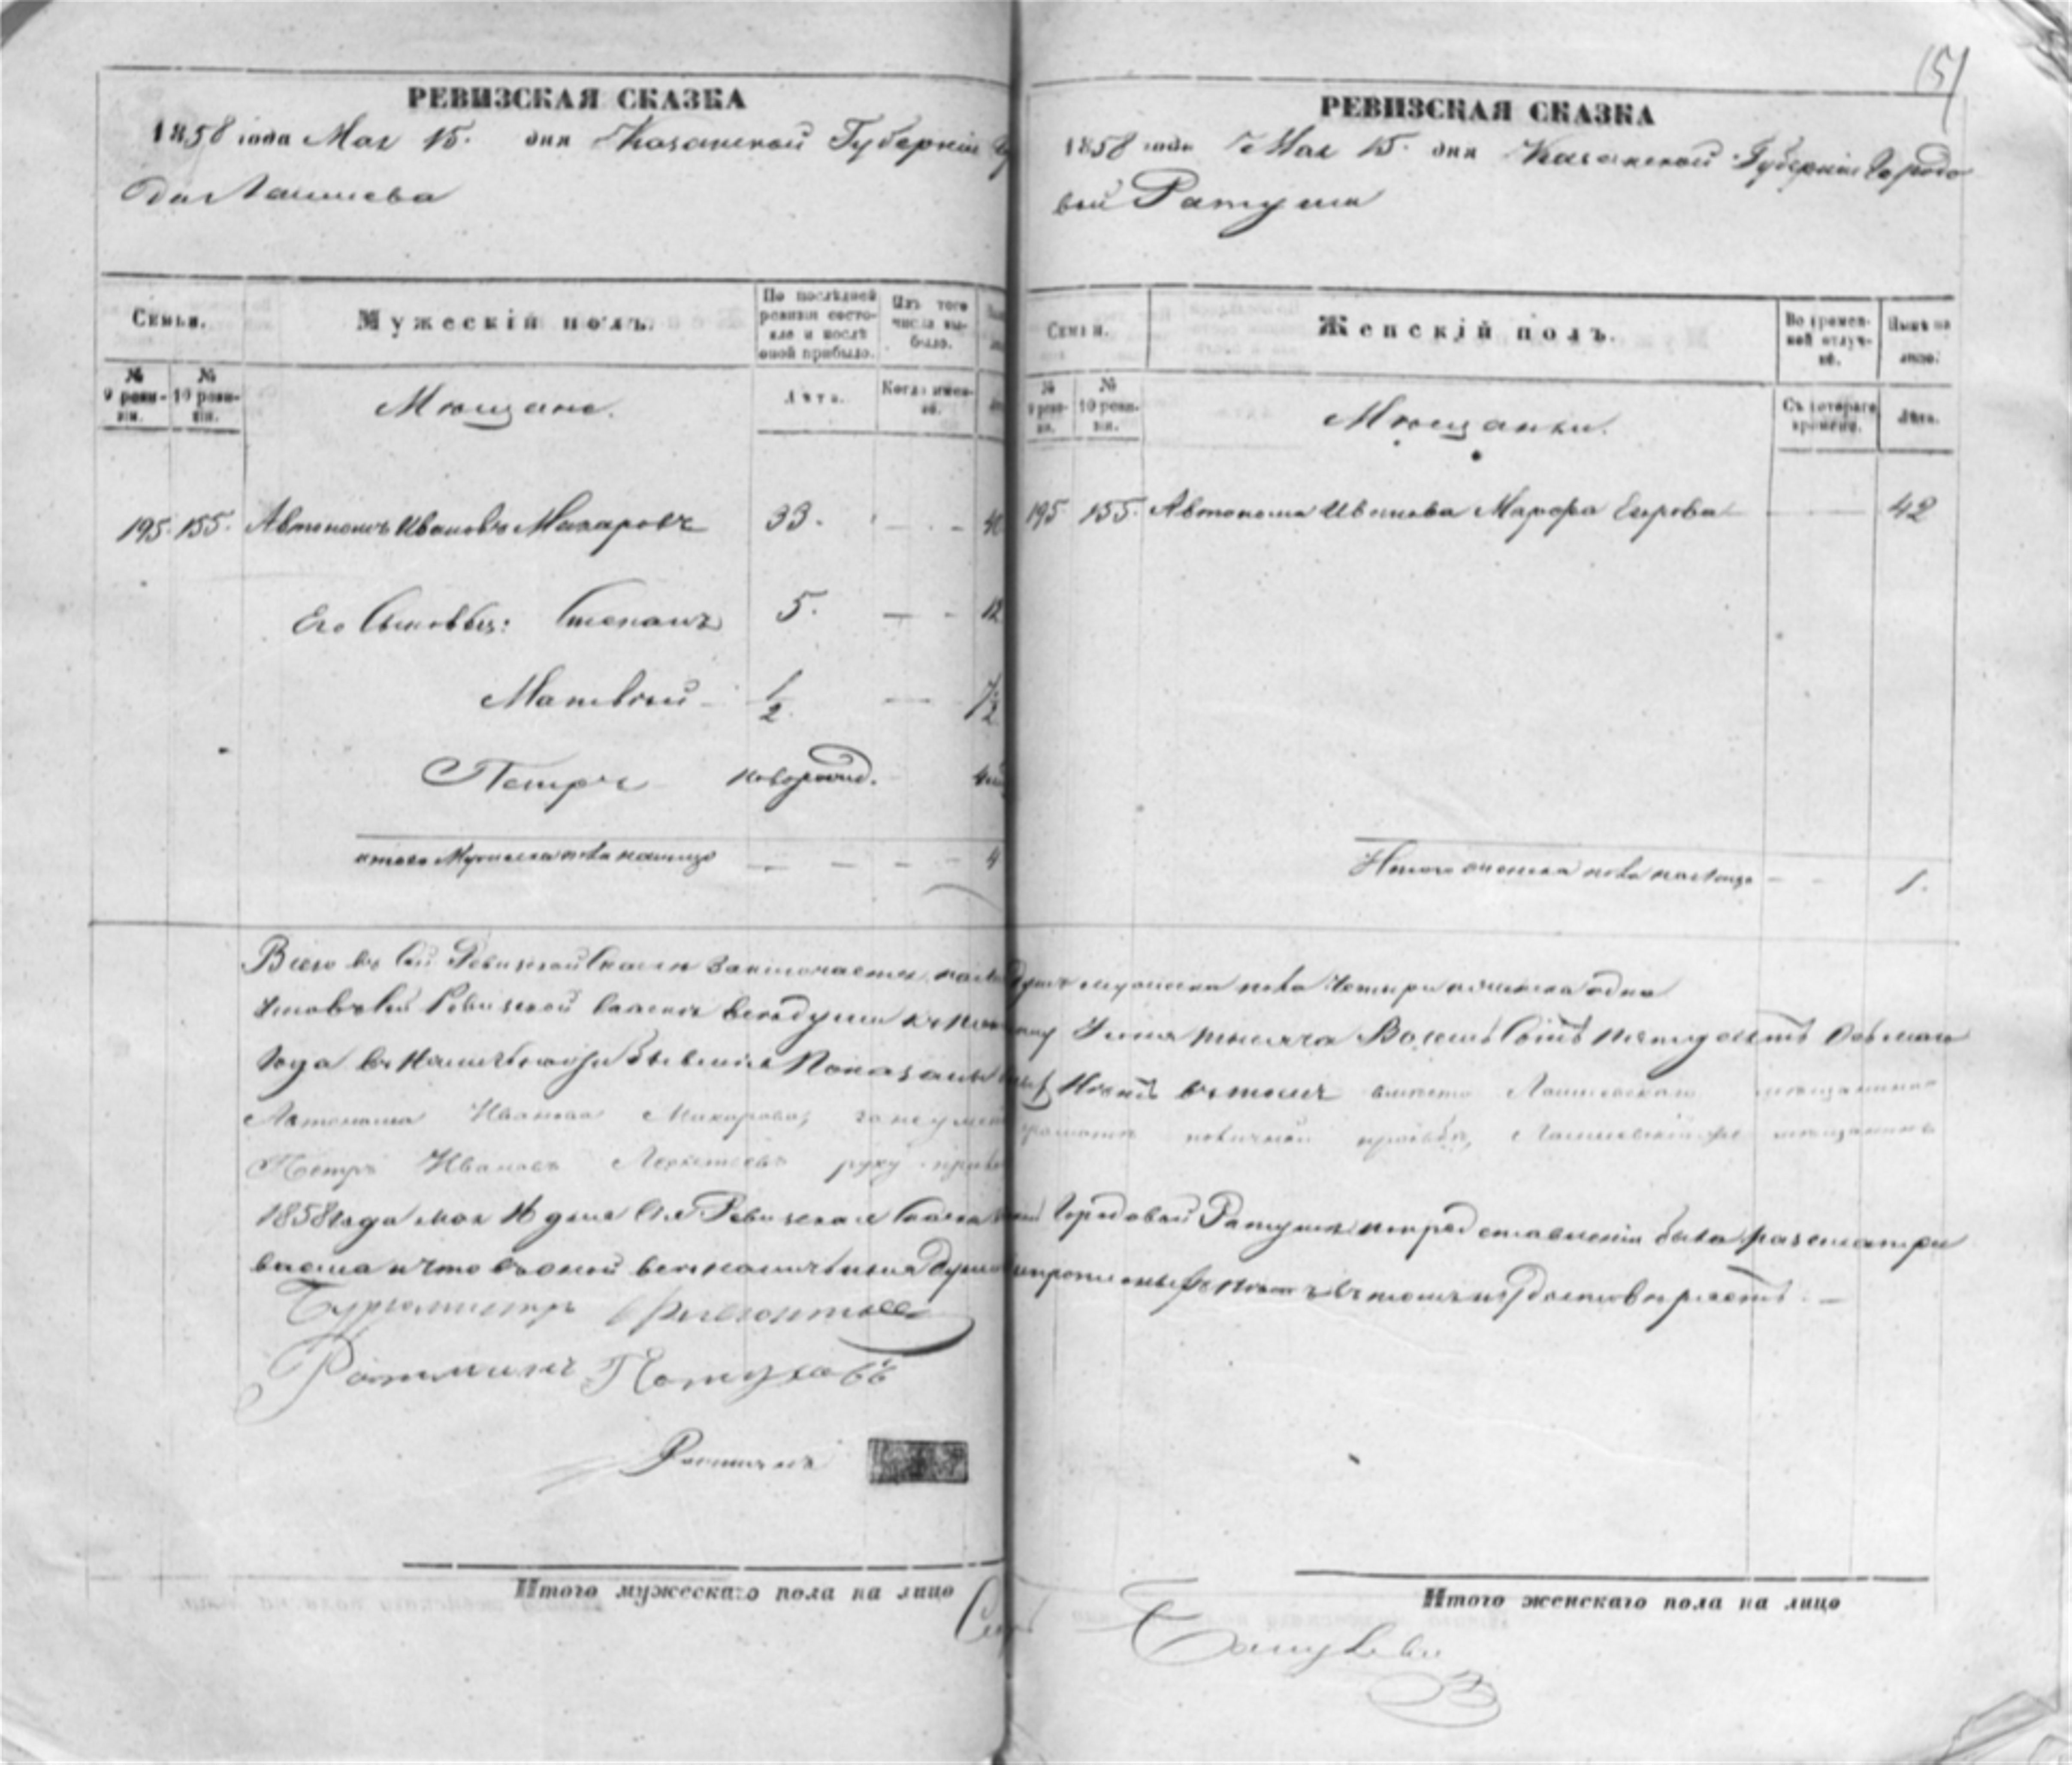 РЕВИЗСКАЯ СКАЗКА
1858 года Мая 15. дня Казанской Губерніи Го
да Лаишева
Семьи.
Мужескій полъ.
По послѣдней ревизіи состояло и послѣ оной прибыло.
Изъ того числа выбыло.
№ 9 ревизіи.
№ 10 ревизіи.
Мѣщане.
Лѣта.
Когда именно.
195. 155. Автономъ Ивановъ Макаровъ 33. — - 40
Его Сыновья: Степанъ 5. — - 12
Матвѣй 1/2 — 7 1/2
Петръ новорожд.
итого Мужеска пола налицо — — - - 4
РЕВИЗСКАЯ СКАЗКА
1858 года Мая 15. дня Казанской Губерніи Городо
вой Ратуши
(5)
Семьи.
Женскій полъ.
Во временной отлучкѣ.
Нынѣ на лицо.
№ 9 ревизіи.
№ 10 ревизіи.
Мѣщанки.
Съ котораго времени.
Лѣта.
195 155. Автонома Иванова Марфа Егорова — 42
Итого женска пола налицо - - 1.
Всего въ сей Ревизской Сказкѣ заключается налицо душъ мужеска пола четыре и женска одна
Что въ сей Ревизской Сказкѣ всѣ души къ тысяча Восемь Сотъ пятьдесятъ Осьмаго
Года въ наличности бывшія Показаны и нѣтъ въ томъ вмѣсто Лаишевскаго мѣщанина
Автонома Иванова Макарова, за неумѣніемъ грамотѣ по личной прозьбѣ, Лаишевскій мѣщанинъ
Петръ Ивановъ руку прило
1858 года мая 16 дня Сія Ревизская Сказка Городовой Ратушѣ по представленіи была разсматри
ваема и что въ оной всѣ наличныя Души и прописныхъ нѣтъ въ томъ удостовѣряетъ. —
Бургомистръ
Ратманъ Потуховъ
Ратманъ
Итого мужескаго пола на лицо
Итого женскаго пола на лицо